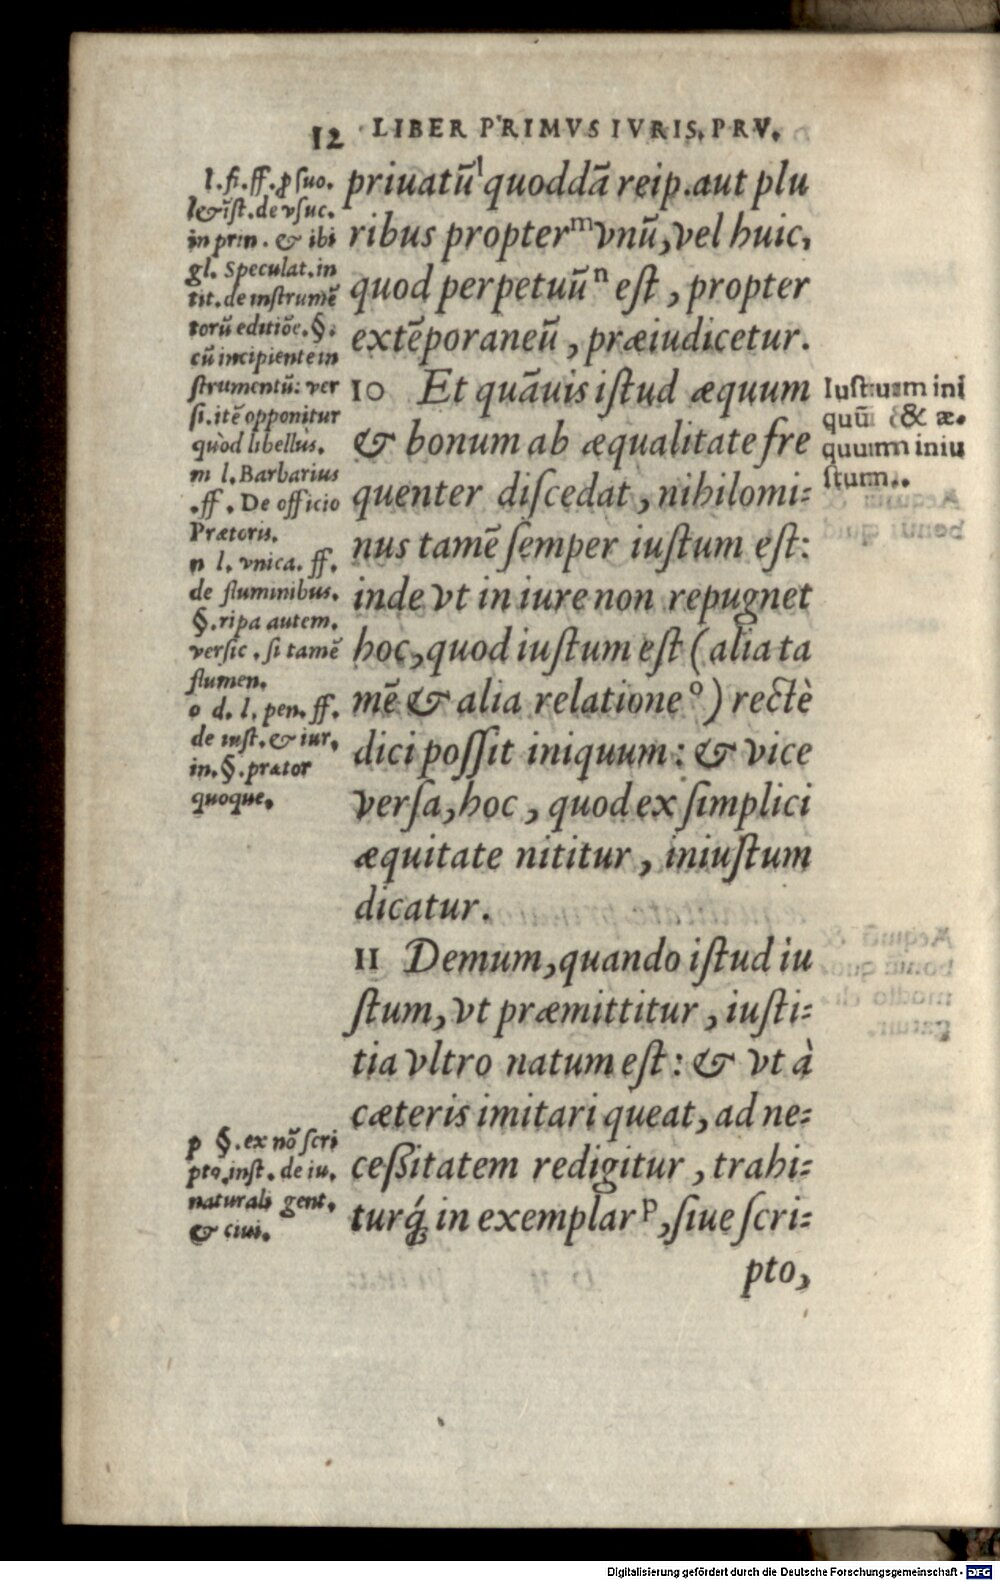 12 LIBER PRIMVS IVRIS.PRV.
priuatũ l quoddã reip.aut plu
ribus propter m vnũ, vel huic,
quod perpetuũ n est, propter
extẽporaneũ, præiudicetur.
10 Et quãuis istud æquum
& bonum ab æqualitate fre
quenter discedat, nihilomi=
nus tamẽ semper iustum est:
inde vt in iure non repugnet
hoc, quod iustum est (alia ta
mẽ & alia relatione o) rectè
dici possit iniquum: & vice
versa, hoc, quod ex simplici
æquitate nititur, iniustum
dicatur.
11 Demum, quando istud iu
stum, vt præmittitur, iusti=
tia vltro natum est: & vt à
cæteris imitari queat, ad ne=
cessitatem redigitur, trahi=
turq́; in exemplar p, siue scri=
pto,
l.fi.ff.ꝓ suo.
l&ĩst.de vsuc.
in prin. & ibi
gl. Speculat.in
tit.de instrumẽ
torũ editiõe.§.
cũ incipiente in
strumentũ: ver
si.itẽ opponitur
quòd libellus.
m l.Barbarius
.ff. De officio
Prætoris.
n l. vnica. ff.
de fluminibus.
§.ripa autem.
versic. si tamẽ
flumen.
o d. l. pen. ff.
de inst.& iur.
in.§.prætor
quoque.
p §.ex nõ scri
pto.inst. de iu.
naturali gent.
& ciui.
Iustum ini
quũ & æ.
quum iniu
stum.
Digitalisierung gefördert durch die Deutsche Forschungsgemeinschaft - DFG